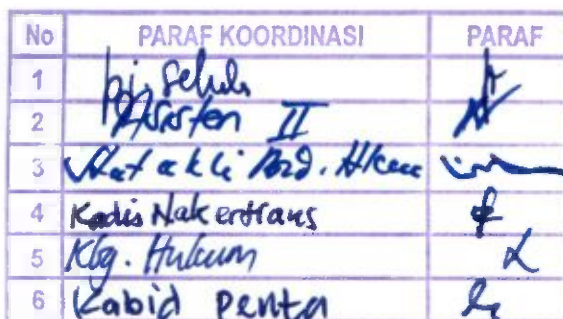 No PARAF KOORDINASI PARAF
1 Pj. Sekda
2 Asisten II
3 Staf ahli Bid. Hkum
4 Kadis Nakertrans
5 Kbg. Hukum
6 Kabid Penta